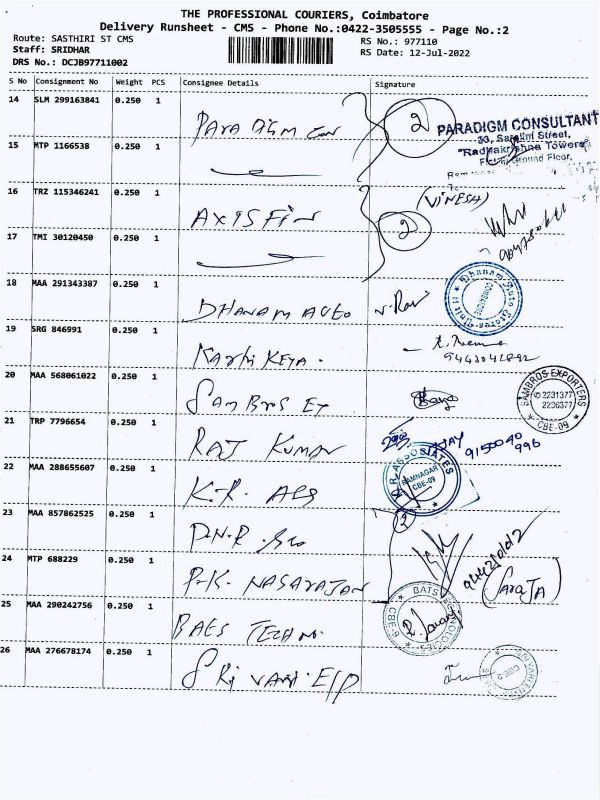 THE PROFESSIONAL COURIERS, Coimbatore
Delivery Runsheet - CMS - Phone No.:0422-3505555 - Page No.:2
Route: SASTHIRI ST CMS
Staff: SRIDHAR
DRS No.: DCJB97711002
RS No.: 977110
RS Date: 12-Jul-2022
S No Consignment No Weight PCS Consignee Details Signature
14 SLM 299163841 0.250 1 Paradigm Con 2
PARADIGM CONSULTANT
33, Sarojini Street,
"Radhakrishna Towers"
Ground Floor,
15 MTP 1166538 0.250 1
16 TRZ 115346241 0.250 1 AXIS Fin (VINESH)
17 TMI 30120450 0.250 1 2
18 MAA 291343387 0.250 1 DHANAM AUTO
Dhanam Auto Stores
COIMBATORE
19 SRG 846991 0.250 1 Karthi Keya.
20 MAA 568061022 0.250 1 Sambros Ex
SAMBROS EXPORTERS
2231377
2236377
CBE-09
21 TRP 7796654 0.250 1 RAJ KUMAR
AJAY
9150040
996
22 MAA 288655607 0.250 1 K.R. Ass
K.R. ASSOCIATES
RAMNAGAR
CBE-09
23 MAA 857862525 0.250 1 P.N.R. 2
24 MTP 688229 0.250 1 P.K. NAGARAJAN
25 MAA 290242756 0.250 1 BATS TECHN.
BATS TECHNOLOGIES
CBE
26 MAA 276678174 0.250 1 SRi VARi E/P